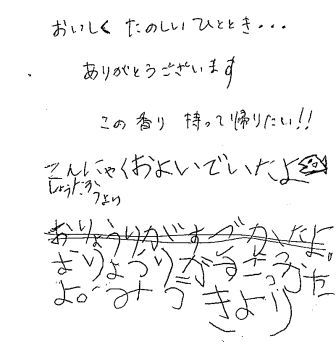 おいしく たのしい ひととき・・・
ありがとうございます
この香り 持って帰りたい!!
こんにゃくおよいでいたよ
しょうたろう
より
おりょうりがすごかったよ。
おりょうりがすごかった
よ。みつきより